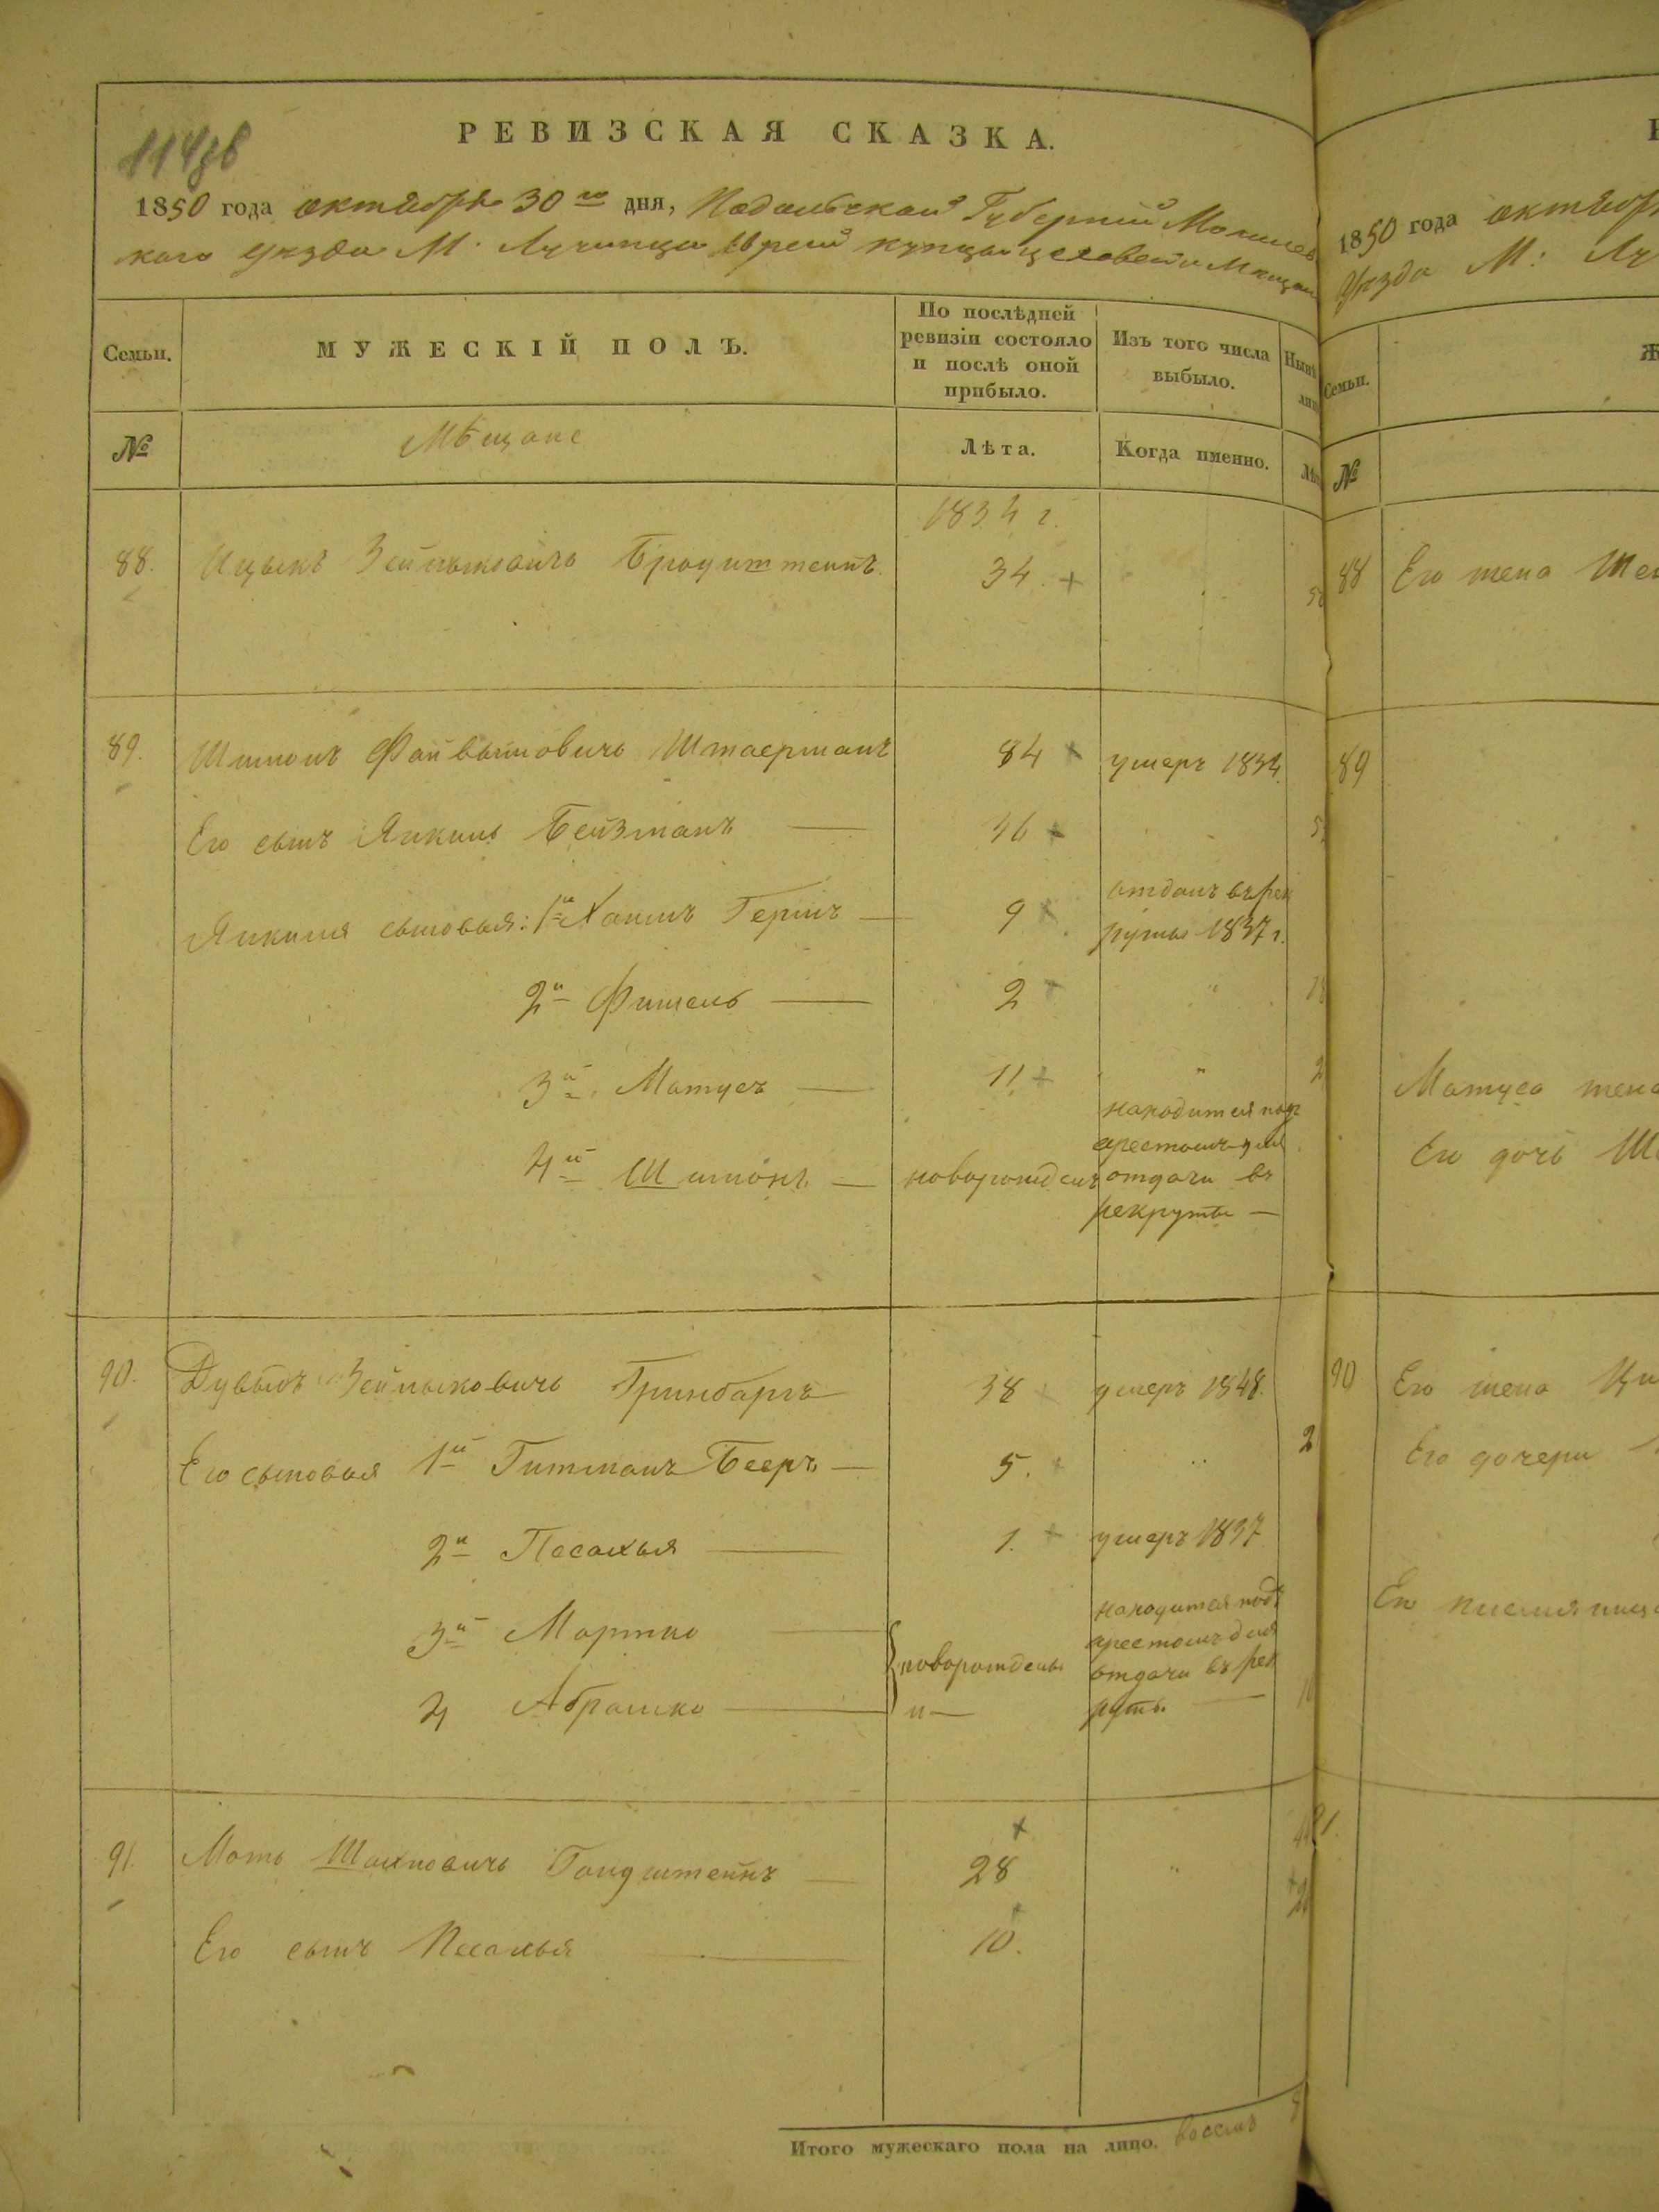 РЕВИЗСКАЯ СКАЗКА.
1850 года октября 30 го дня, Подольской Губерніи Могилев
каго уезда М. Лучинца Евреи купцы цеховей и Мещан
Семьи.
МУЖЕСКІЙ ПОЛЪ.
По послѣдней
ревизіи состояло
и послѣ оной
прибыло.
Изъ того числа
выбыло.
Нынѣ
№
Мѣщане
Лѣта.
Когда именно.
1834 г.
88. Ицыкъ Зейлыковичъ Бродштейнъ 34
89. Шимонъ Файвышовичъ Штаерманъ 84 умеръ 1834
Его сынъ Янкель Бейзманъ — 36
Янкеля сыновья: 1й Хаимъ Гершъ — 9 отданъ въ рек
руты 1837 г.
2й Фишель — 2 "
3й Матусъ — 11 "
4й Шимонъ — новорожденъ находится подъ
арестомъ для
отдачи въ
рекруты —
90. Дувыдъ Зейлыковичъ Гринбаргъ 38 умеръ 1848.
Его сыновья 1й Гитманъ Бееръ — 5.
2й Песахья — 1. умеръ 1837
3й Мортко — новорождены
4 Абрашко — и — находится подъ
арестомъ для
отдачи въ рек
руты. —
91. Моть Шахновичъ Голдштейнъ — 28 "
Его сынъ Песахья — 10.
Итого мужескаго пола на лицо. восемь 8
1850 года октябр
Уезда М: Лу
Семьи.
№
88 Его жена Ше
89
Матуса жена
Его дочь Ш
90 Его жена Ци
Его дочери
Его племянница
91.